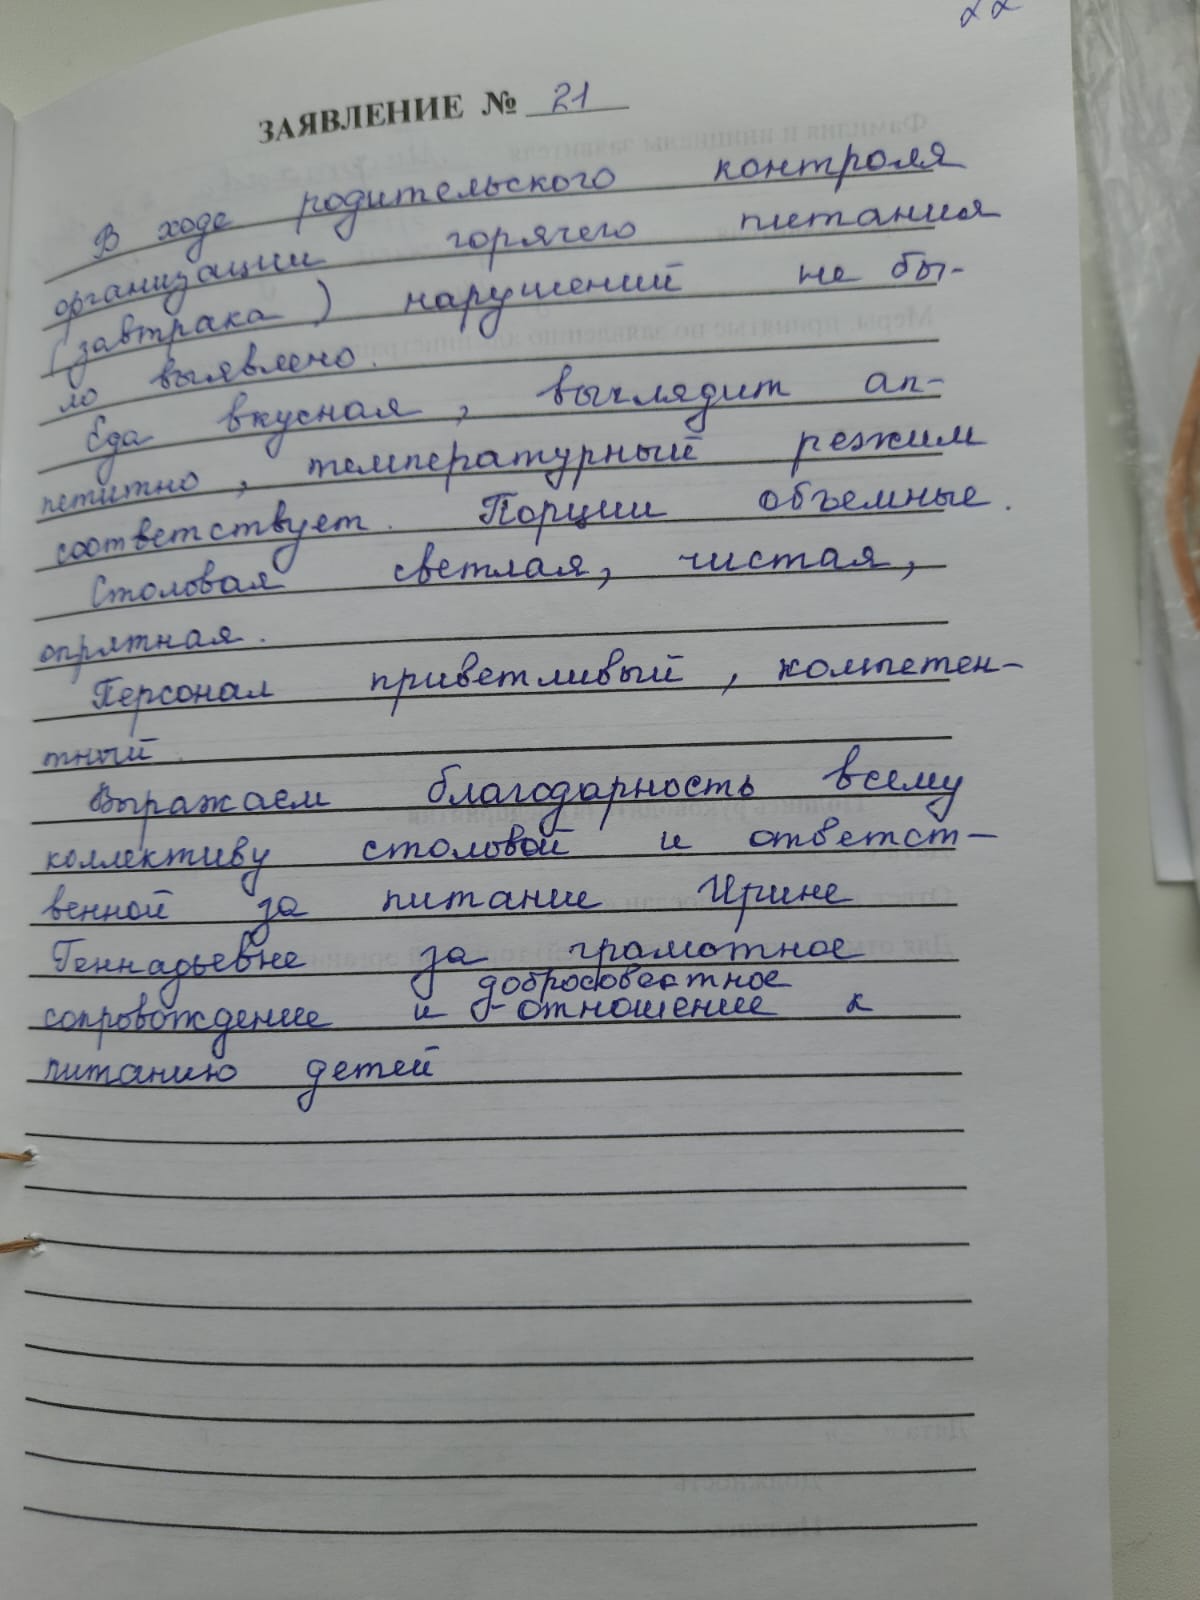 ЗАЯВЛЕНИЕ № 21
В ходе родительского контроля
организации горячего питания
(завтрака) нарушений не бы-
ло выявлено.
Еда вкусная, выглядит ап-
петитно, температурный режим
соответствует. Порции объемные.
Столовая светлая, чистая,
опрятная.
Персонал приветливый, компетен-
тный.
Выражаем благодарность всему
коллективу столовой и ответст-
венной за питание Ирине
Геннадьевне за грамотное
добросовестное
сопровождение и отношение к
питанию детей